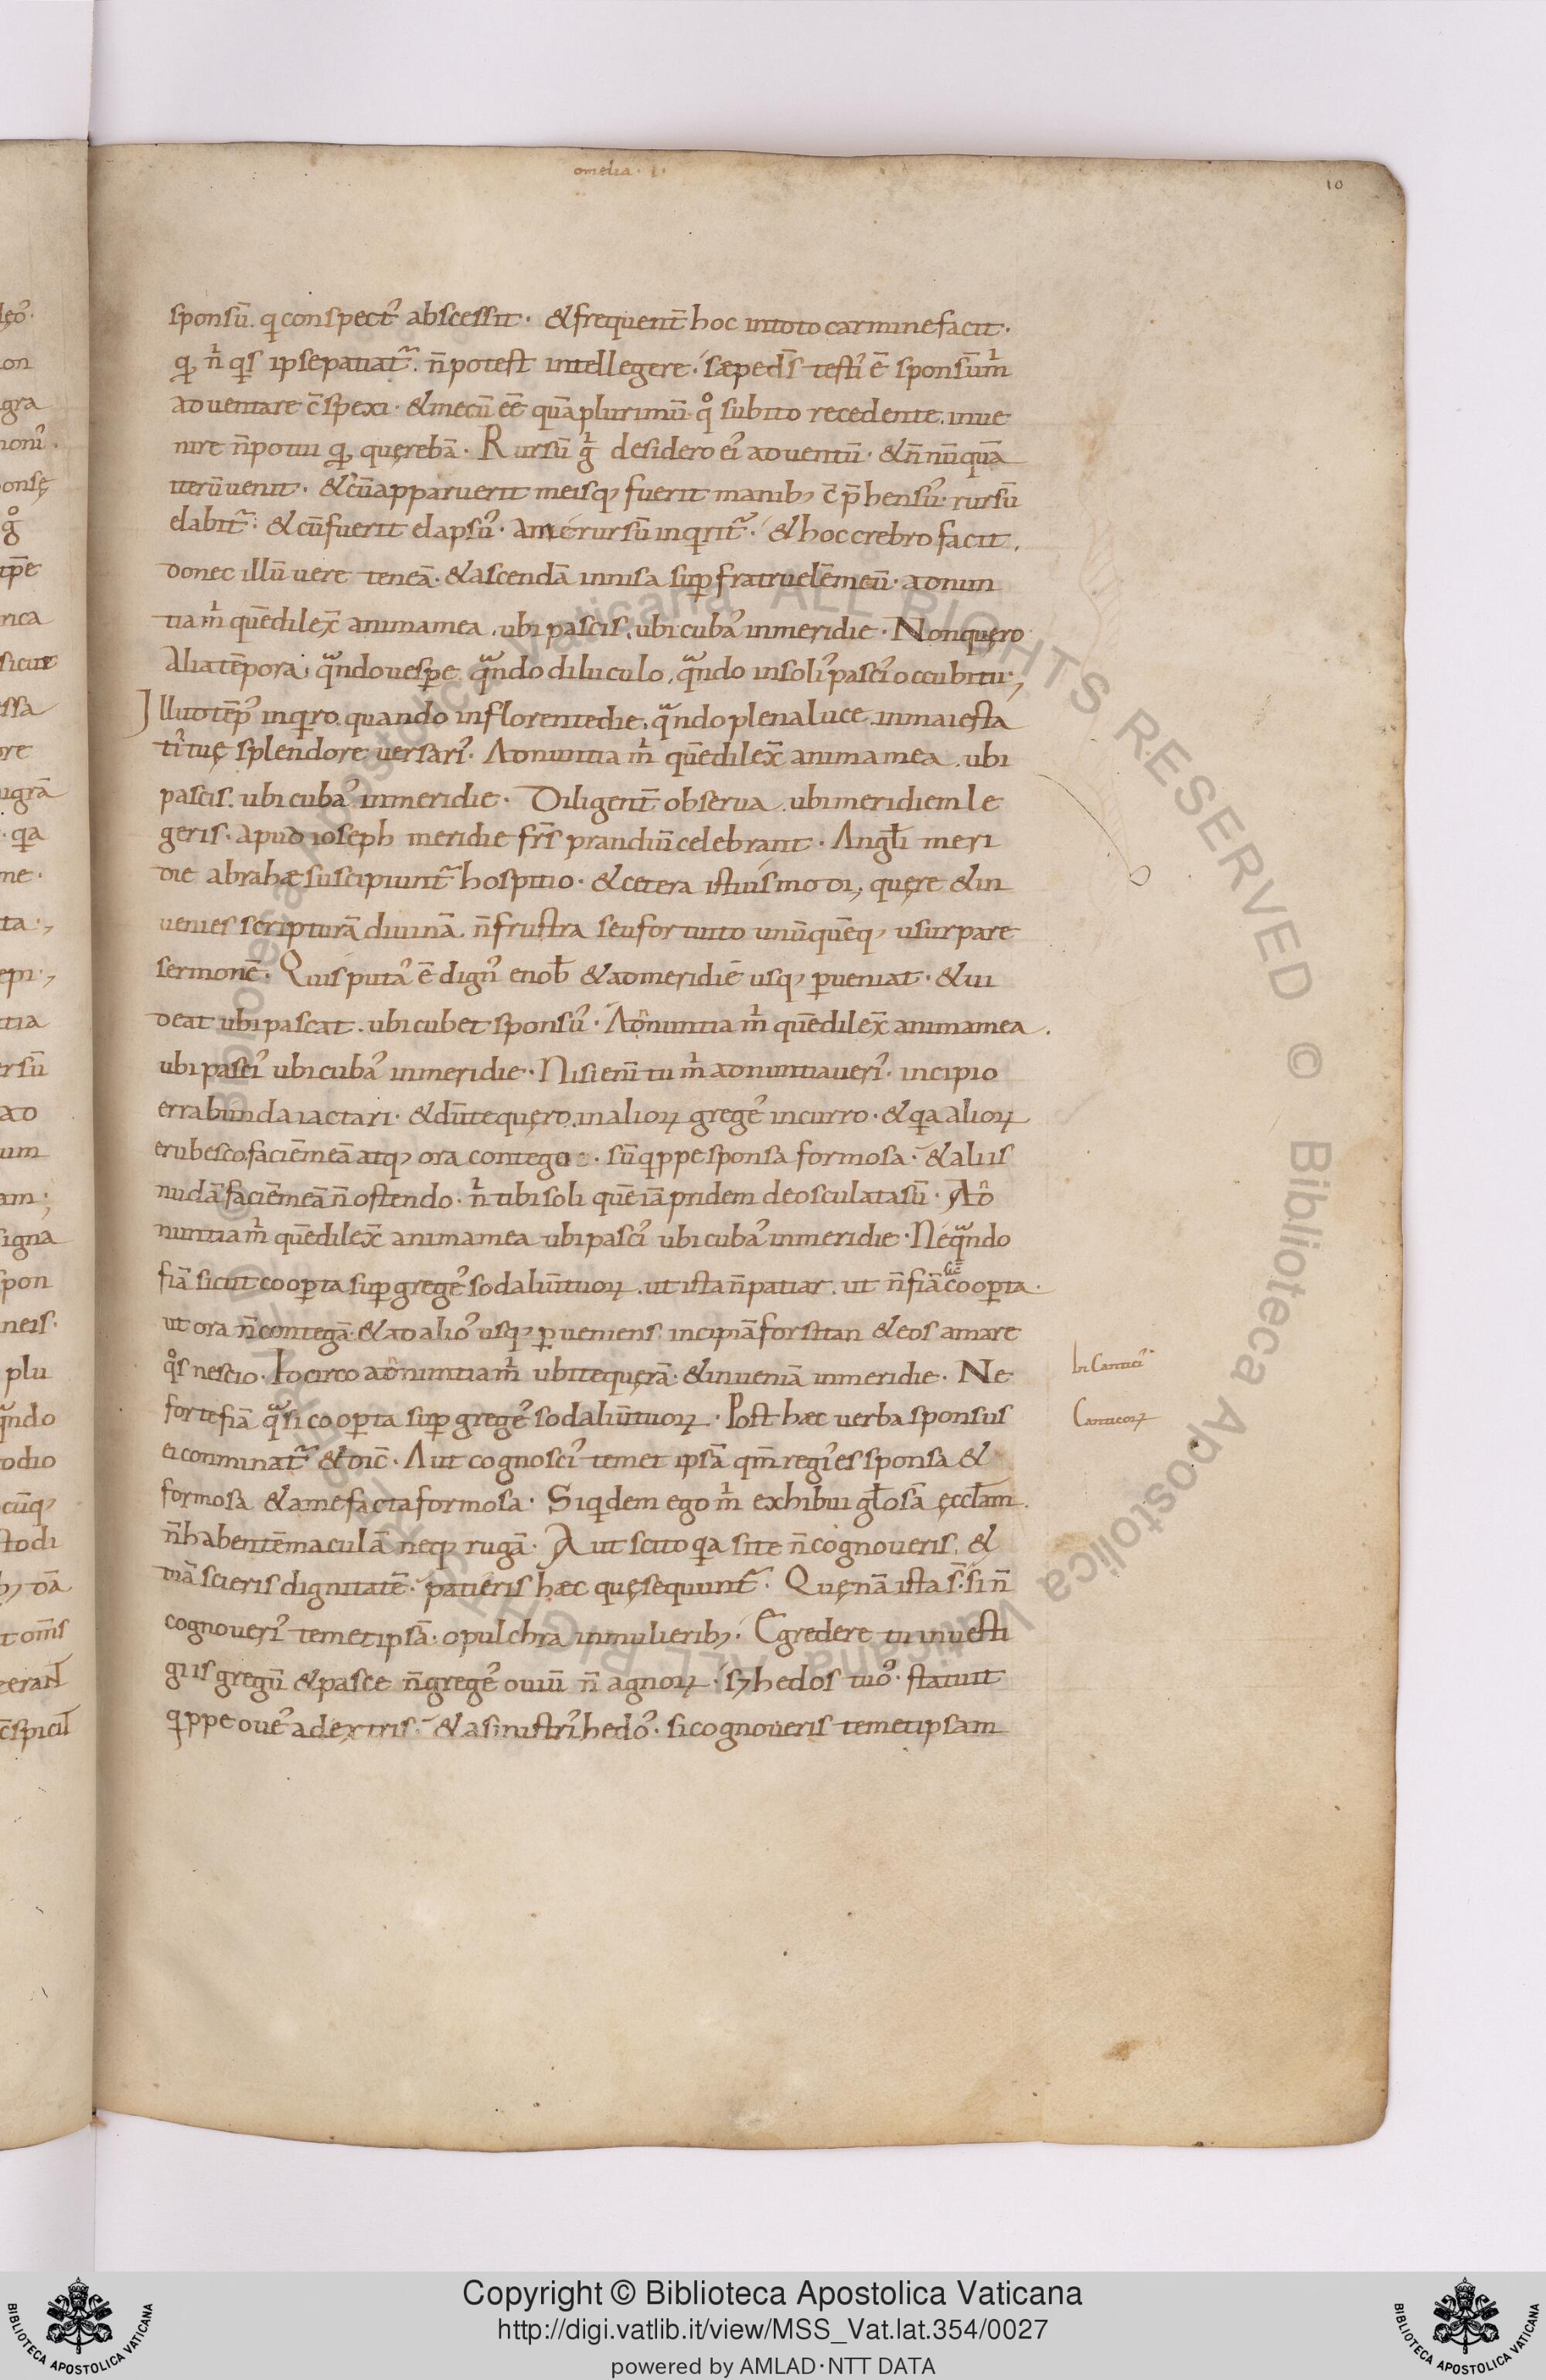 omelia · I ·
10
sponsū. q conspectꝰ abscessit · & frequent̄ hoc in toto carmine facit ·
qđ, nͥ qͥs ipse patiat᷑. n̄ potest intellegere · sæpe d̄s testiꝰ ē sponsūmͥ
aduentare c̄spexi · & mecū eē quā plurimū · qͦ subito recedente. inue
nire n̄ potui qđ, quęrebā · Rursū gͥ desidero eiꝰ aduentū · & n̄nūquā
iterū uenit · & cū apparuerit meisq; fuerit manib; c̄p̄hensuꝰ · rursū
elabit᷑ · & cū fuerit elapsuꝰ · a me rursū inqͥrit᷑ · & hoc crebro facit.
donec illū uere teneā · & ascendā innisa suꝑ fratruelē meū · adnun
tia mͥ quē dilex̄ anima mea. ubi pascis. ubi cubaꝰ in meridie · Non quęro
alia tēpora; qᷓndo uesꝑe qᷓndo diluculo, qᷓndo in soliꝰ pasciꝰ occubitu;
Illud tēpꝰ inqͥro. quando in florente die, qᷓndo plena luce. in maiesta
tiꝰ tuę splendore uersariꝰ · Adnuntia mͥ quē dilex̄ anima mea. ubi
pascis. ubi cubaꝰ in meridie · Diligent̄ obserua. ubi meridiem le
geris · apud ioseph meridie fr̄s prandiū celebrant · Angl̄i meri
die abrahæ suscipiunt᷑ hospitio · & cetera istiusmodi; quęre & in
uenies scripturā diuinā. n̄ frustra seu fortuito unūquēq; usurpare
sermonē · Quis putaꝰ ē dignꝰ e nob̄ & ad meridiē usq; ꝑueniat · & ui
deat ubi pascat. ubi cubet sponsuꝰ · Adnuntia mͥ quē dilex̄ anima mea.
ubi pasciꝰ ubi cubaꝰ in meridie · Nisi enī tu mͥ adnuntiaueriꝰ · incipio
errabunda iactari · & dū te quęro. in alioꝝ gregeꝰ incurro · & qͣa alioꝝ
erubesco. faciē meā atq; ora contego · sū qͥppe sponsa formosa · & aliis
nudā faciē meā n̄ ostendo · nͥ tibi soli quē iā pridem deosculata sū · Ad
nuntia mͥ quē dilex̄ anima mea ubi pasciꝰ ubi cubaꝰ in meridie · Ne qᷓndo
fiā sicut cooꝑta suꝑ gregeꝰ sodaliū tuoꝝ. ut ista n̄ patiar. ut n̄ fiā sic̄ cooꝑta ·
ut ora n̄ contegā · & ad alioꝰ usq; ꝑueniens. incipiā forsitan & eos amare
qͦs nescio · Idcirco adnuntia mͥ ubi te quęrā · & inueniā in meridie · Ne
In Canticiꝰ
forte fiā qᷓsi cooꝑta suꝑ gregeꝰ sodaliū tuoꝝ · Post hæc uerba sponsus
Canticoꝝ
ei conminat᷑ & dic̄ · Aut cognosciꝰ temet ipsā qm̄ regiꝰ es sponsa &
formosa & a me facta formosa · Siqͥdem ego mͥ exhibui gl̄osā ęccl̄am.
n̄ habentē maculā neq; rugā · Aut scito qͣa si te n̄ cognoueris. &
tuā scieris dignitatē. patieris hæc quę sequunt᷑ · Quęnā ista s̄ · si n̄
cognoueriꝰ temetipsā · o pulchra in mulierib; · Egredere tu in uesti
giis gregū & pasce n̄ gregeꝰ ouiū n̄ agnoꝝ · s; hedos tuoꝰ · statuit
qͥppe oueꝰ a dextris · & a sinistriꝰ hedoꝰ · si cognoueris temetipsam
Copyright © Biblioteca Apostolica Vaticana
http://digi.vatlib.it/view/MSS_Vat.lat.354/0027
powered by AMLAD·NTT DATA
BIBLIOTECA APOSTOLICA VATICANA
BIBLIOTECA APOSTOLICA VATICANA